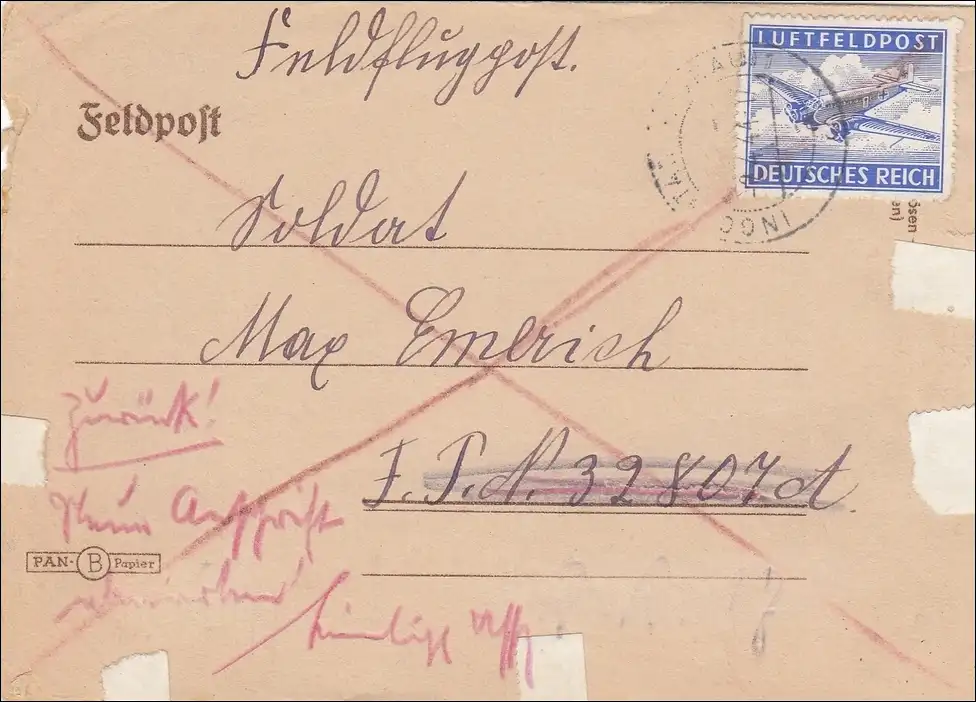 Feldflugpost.
LUFTFELDPOST
DEUTSCHES REICH
Feldpost
Soldat
Max Emerich
F. P. N. 32807 A.
Zurück!
Neue Anschrift
abwarten!
PAN- B Papier
INGO
ösen
an)